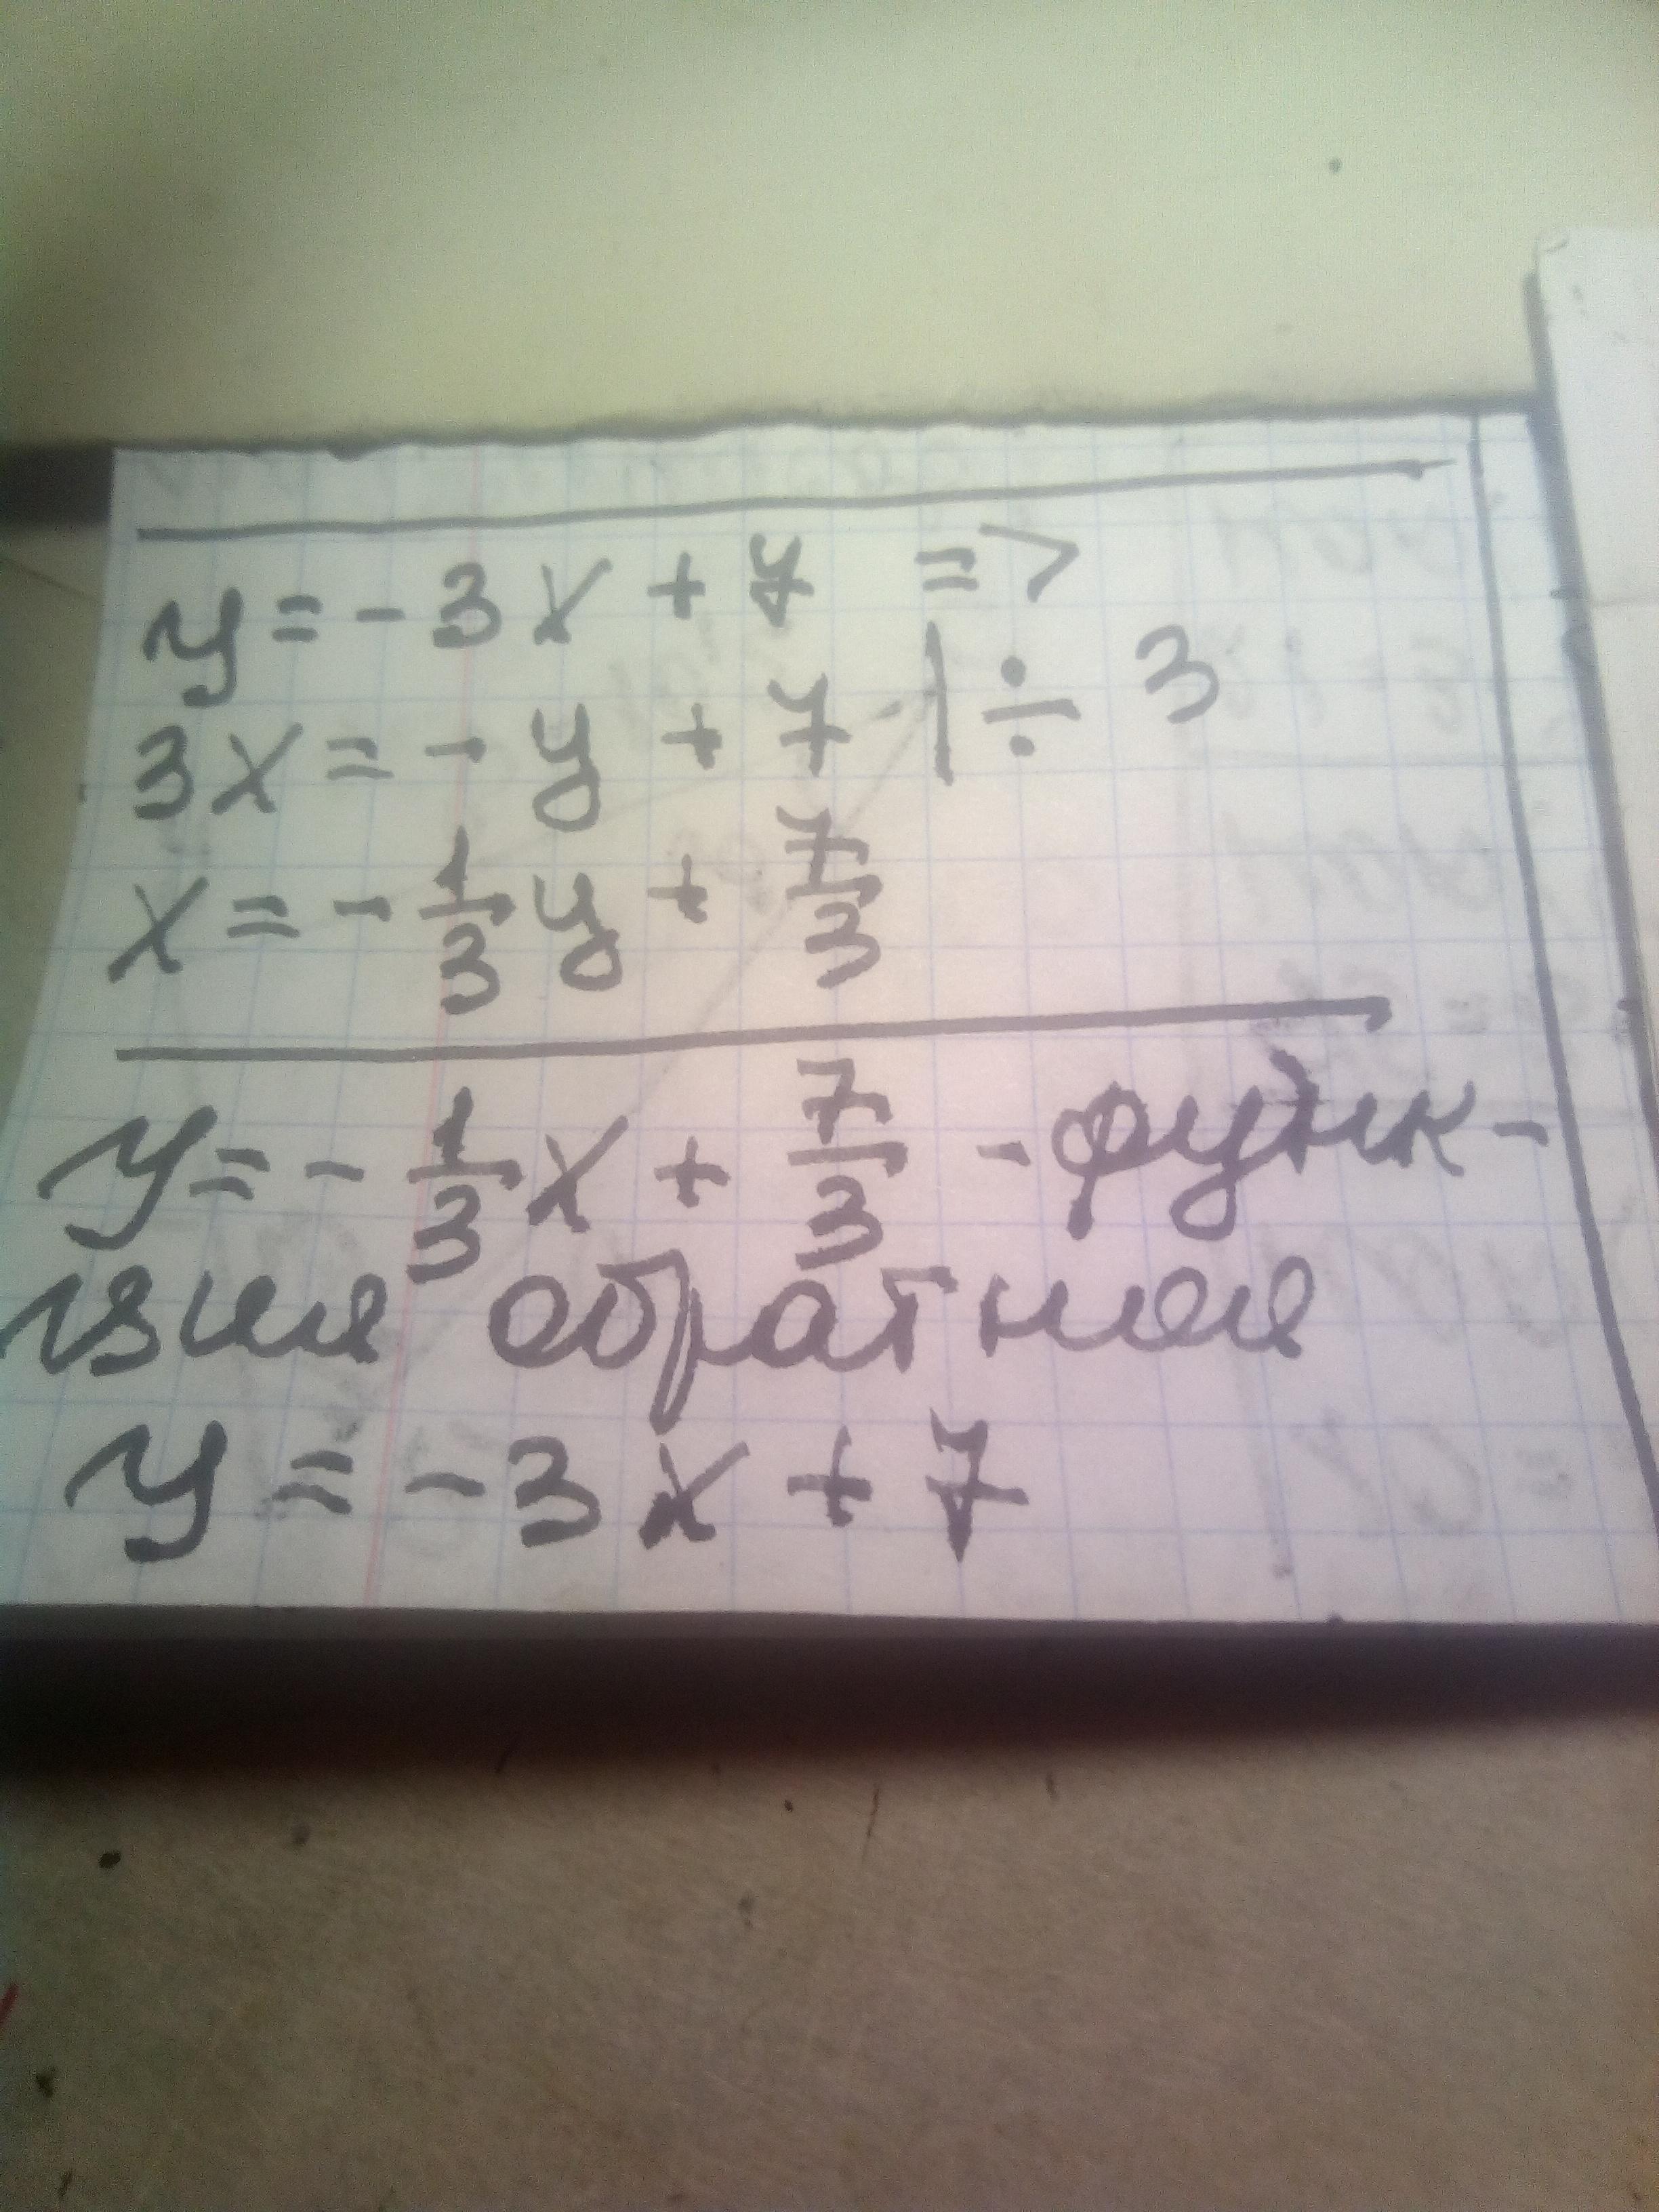 y = -3x + 7 =>
3x = -y + 7 | ÷ 3
x = -1/3 y + 7/3
y = -1/3 x + 7/3 - функ-
ция обратная
y = -3x + 7